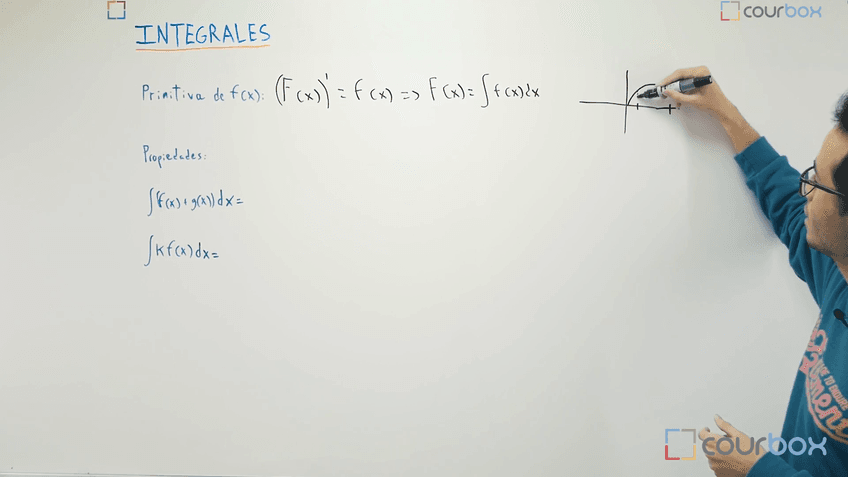 courbox
INTEGRALES
Primitiva de f(x): (F(x))' = f(x) => F(x) = ∫f(x)dx
Propiedades:
∫(f(x)+g(x))dx=
∫Kf(x)dx=
courbox